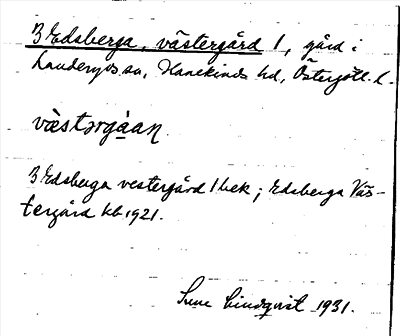 3 Edsberga, västergård 1, gård i
Landeryds sn, Hanekinds hd, Östergötl. l.
västərgåan
3 Edsberga vestergård 1 bek; Edsberga Väs-
tergård kb 1921.
Sune Lindqvist 1931.